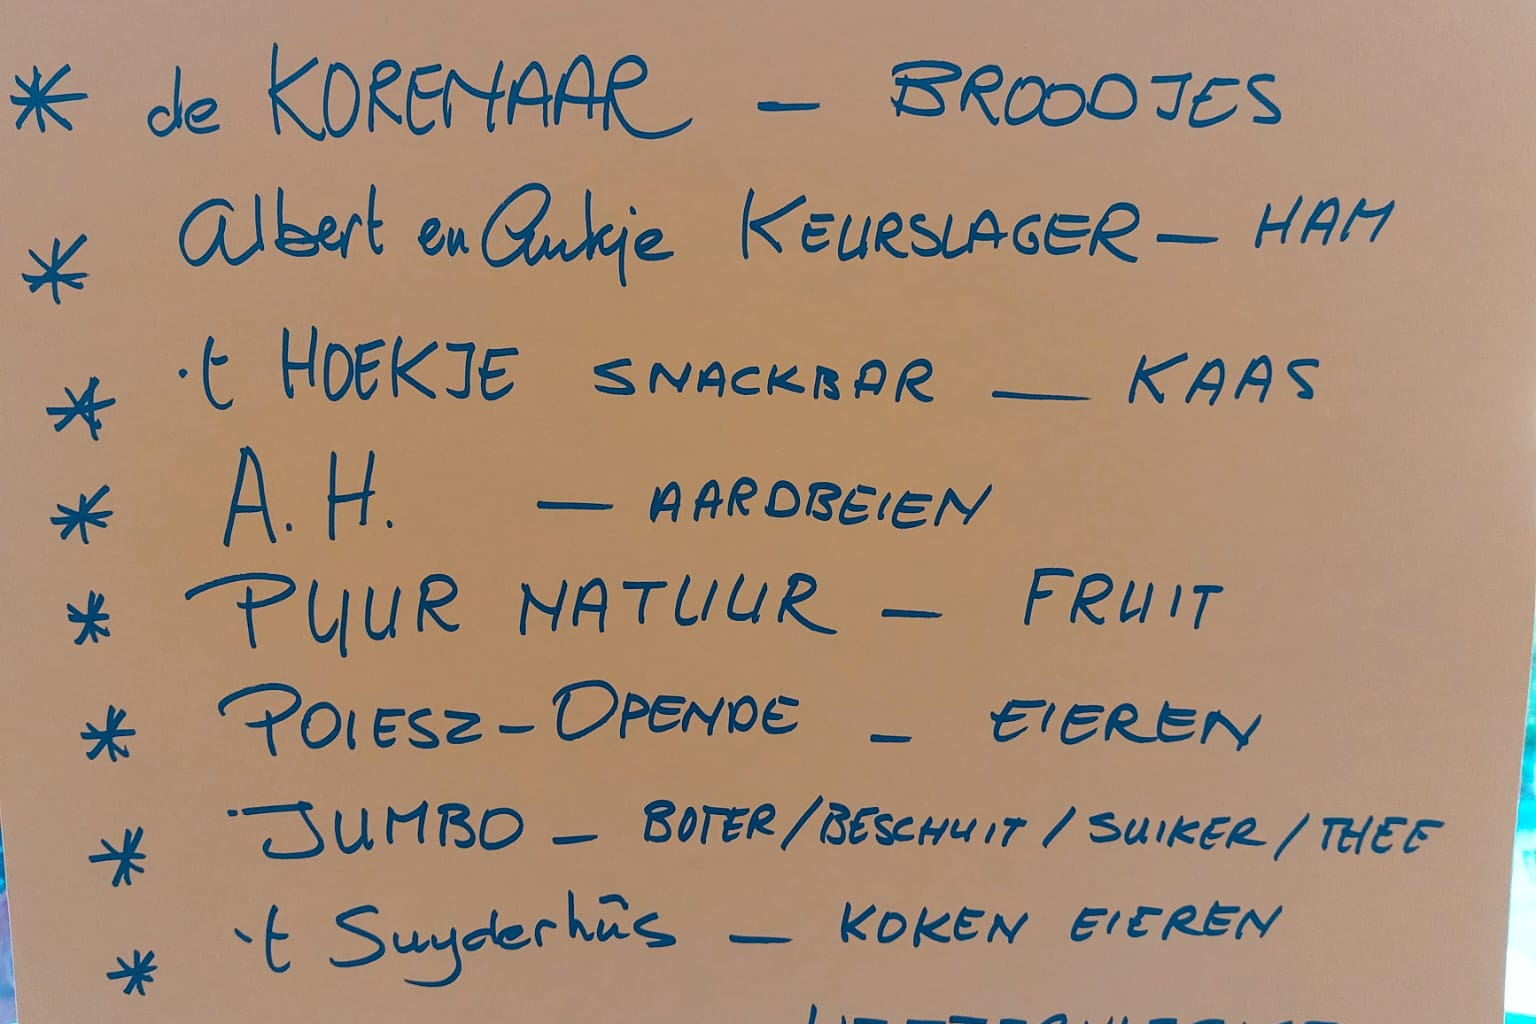 * de KORENAAR — BROODJES
* Albert en Aukje KEURSLAGER — HAM
* 't HOEKJE SNACKBAR — KAAS
* A.H. — AARDBEIEN
* PUUR NATUUR — FRUIT
* POIESZ - OPENDE - EIEREN
* JUMBO - BOTER/BESCHUIT/SUIKER/THEE
* 't Suyderhûs — KOKEN EIEREN